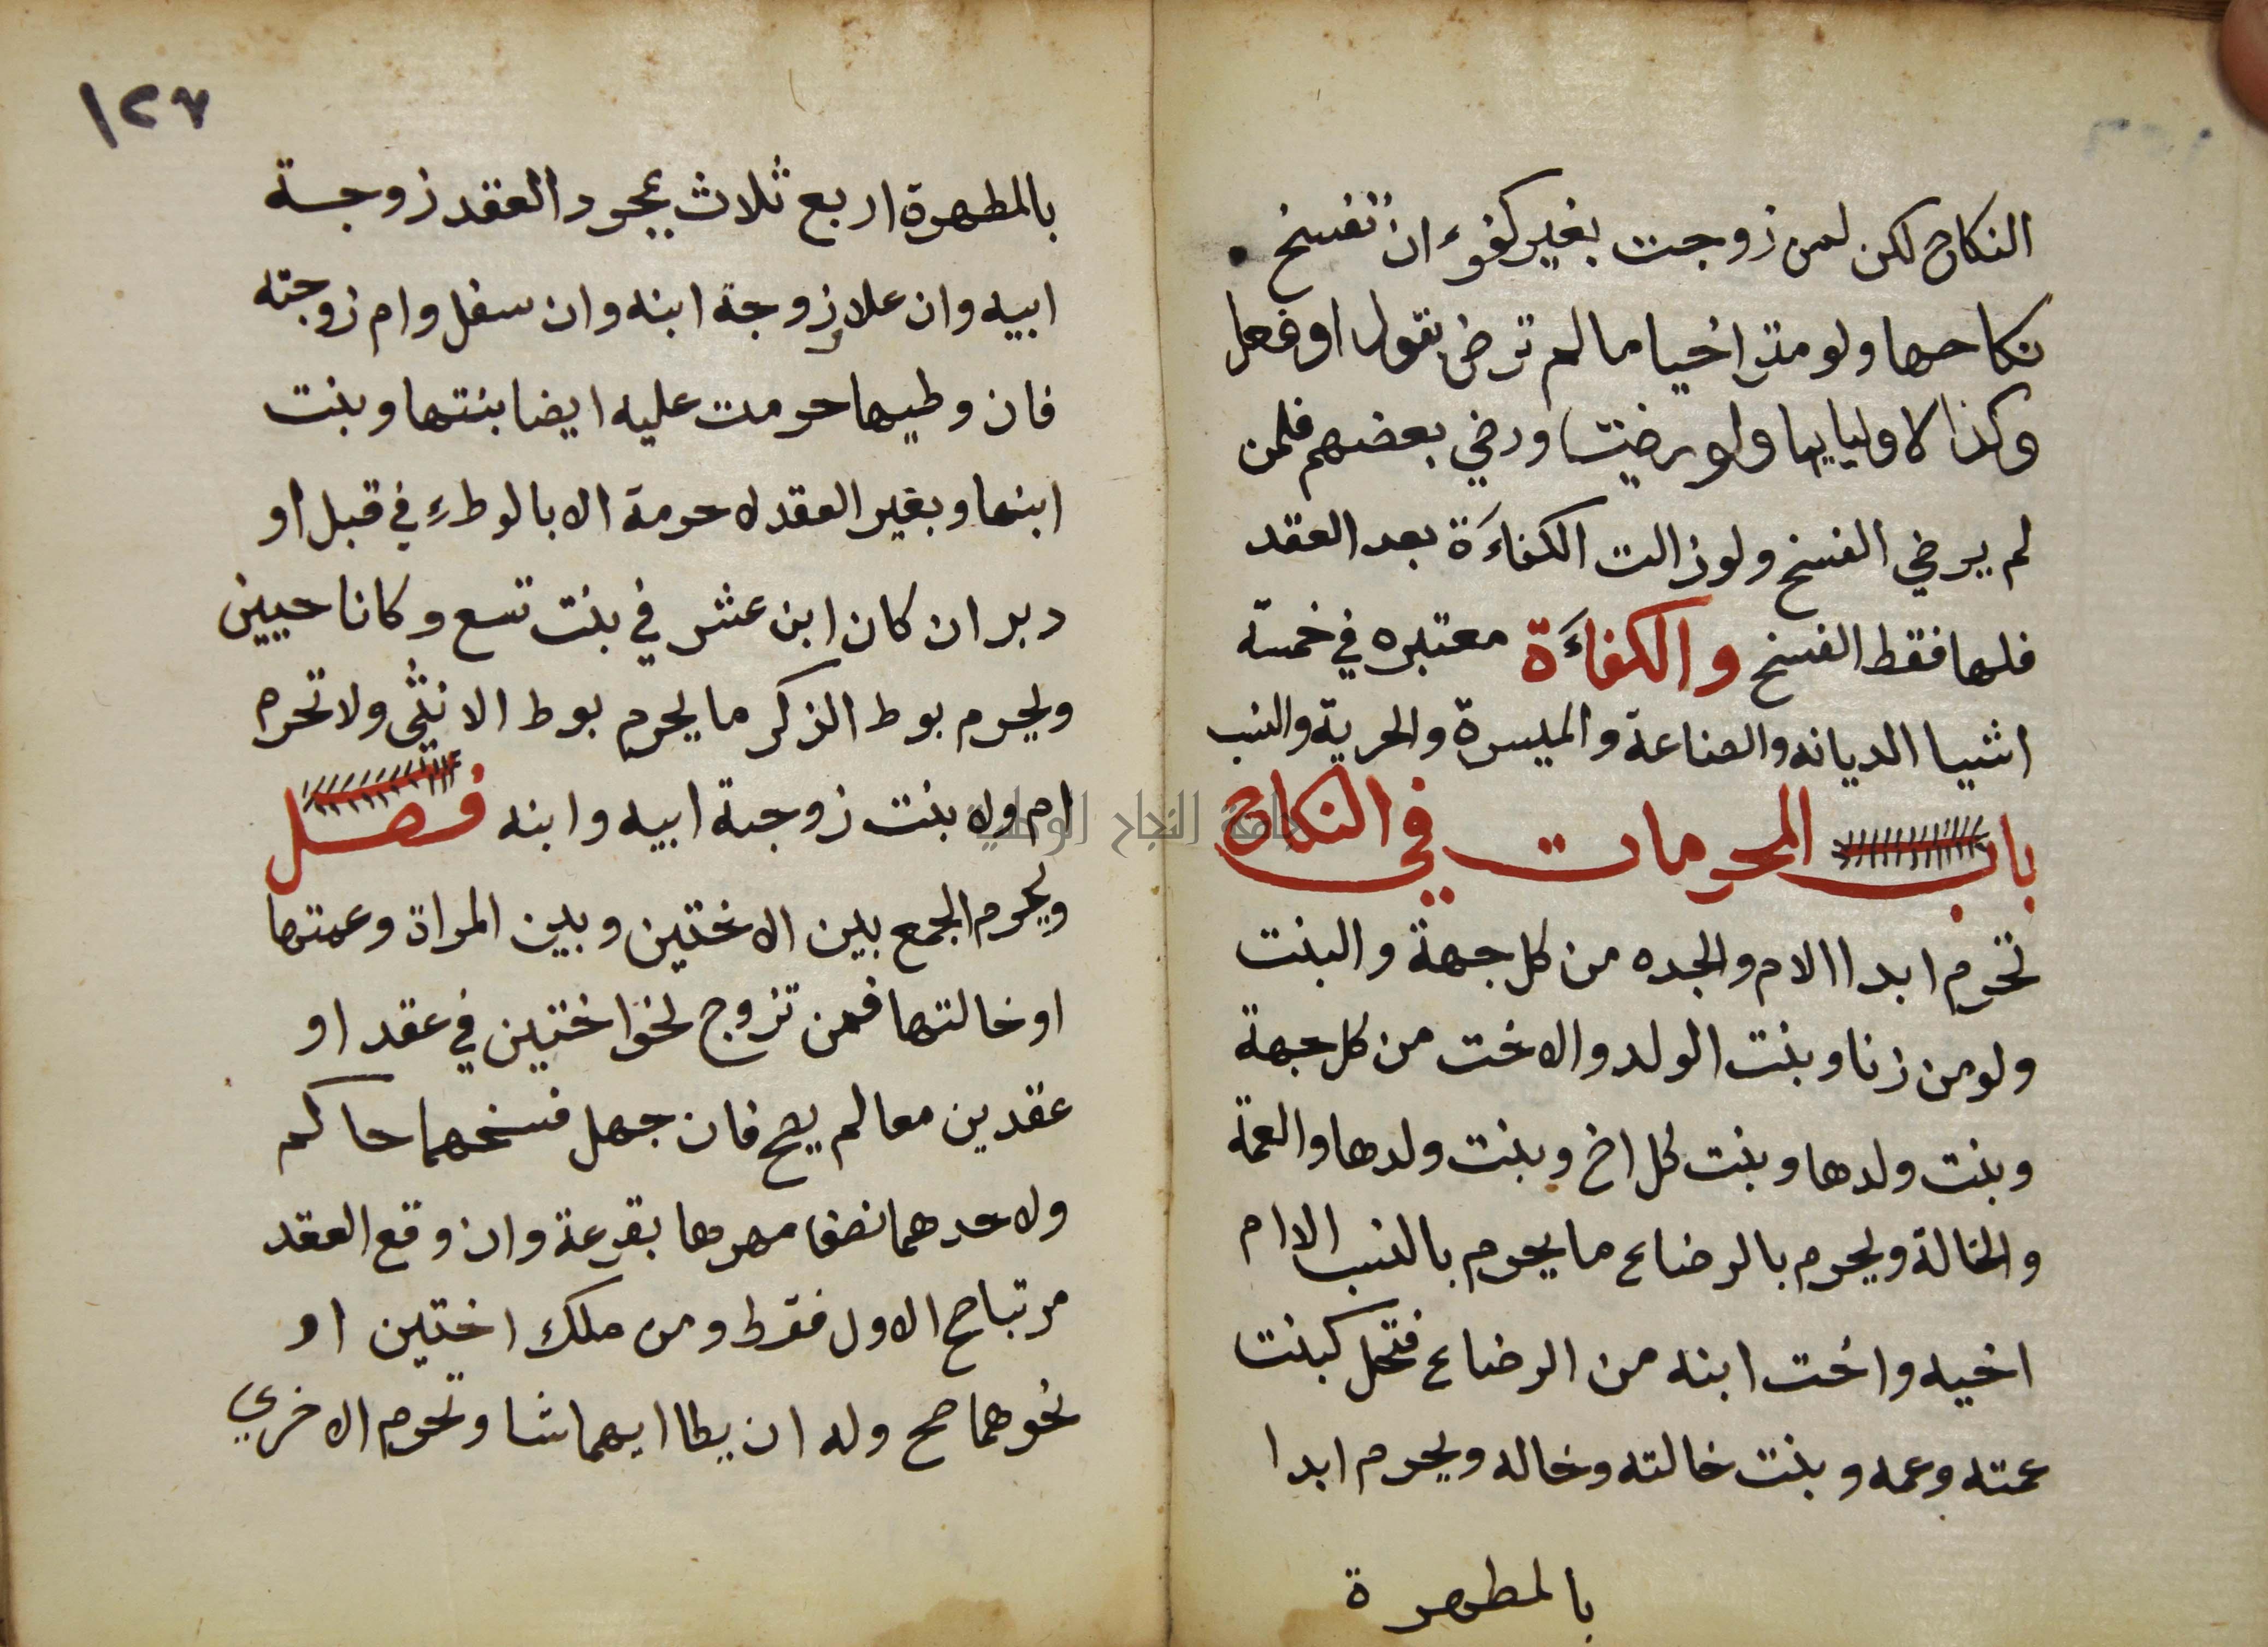 النكاح لكن لمن زوجت بغير كفوء ان تفسخ
نكاحها ولو متراخيا ما لم ترض بقول او فعل
وكذا لاوليايها ولو رضيت ورضي بعضهم فلمن
لم يرضي الفسخ ولو زالت الكفاءَة بعد العقد
فلها فقط الفسخ والكفاءَة معتبره في خمسة
اشيا الديانه والصناعة والميسرة والحرية والنسب
باب المحرمات في النكاح
تحرم ابدا الام والجده من كل جهة والبنت
ولو من زنا وبنت الولد والاخت من كل جهة
وبنت ولدها وبنت كل اخ وبنت ولدها والعمة
والخالة ويحرم بالرضاع ما يحرم بالنسب الا ام
اخيه واخت ابنه من الرضاع فتحل كبنت
عمته وعمه وبنت خالته وخاله ويحرم ابدا
بالمطهرة
١٢٧
بالمطهرة اربع ثلاث بمجرد العقد زوجة
ابيه وان علا وزوجة ابنه وان سفل وام زوجته
فان وطيها حرمت عليه ايضا بنتها وبنت
ابنها وبغير العقد لا حرمة الا بالوطء في قبل او
دبر ان كان ابن عشر في بنت تسع وكانا حيين
ويحرم بوط الذكر ما يحرم بوط الانثى ولا تحرم
ام ولا بنت زوجة ابيه وابنه فصل
ويحرم الجمع بين الاختين وبين المراة وعمتها
او خالتها فمن تزوج نحو اختين في عقد او
عقدين معا لم يصح فان جهل فسخهما حاكم
ولاحدهما نصف مهرها بقرعة وان وقع العقد
مرتبا صح الاول فقط ومن ملك اختين او
نحوهما صح وله ان يطا ايهما شا وتحرم الاخري
جامعة النجاح الوطنية